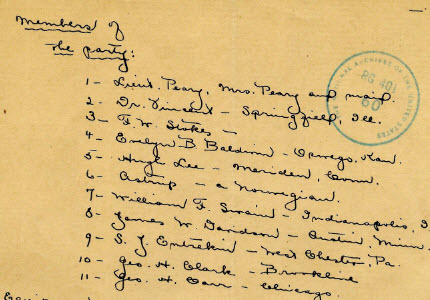 Members of
the party:
1- Lieut. Peary, Mrs. Peary and maid.
2- Dr. Vincent - Springfield, Ill.
3- F. W. Stokes -
4- Evelyn B Baldwin - Oswego, Kan.
5- Hugh Lee - Meriden, Conn.
6- Astrup - a Norwegian.
7- William F. Swain - Indianapolis, I
8- James W. Davidson - Austin, Minn.
9- S. J. Entrekin - West Chester, Pa.
10- Geo. H. Clark - Brookline
11- Geo. H. Carr - Chicago.
NATIONAL ARCHIVES OF THE UNITED STATES
RG 401